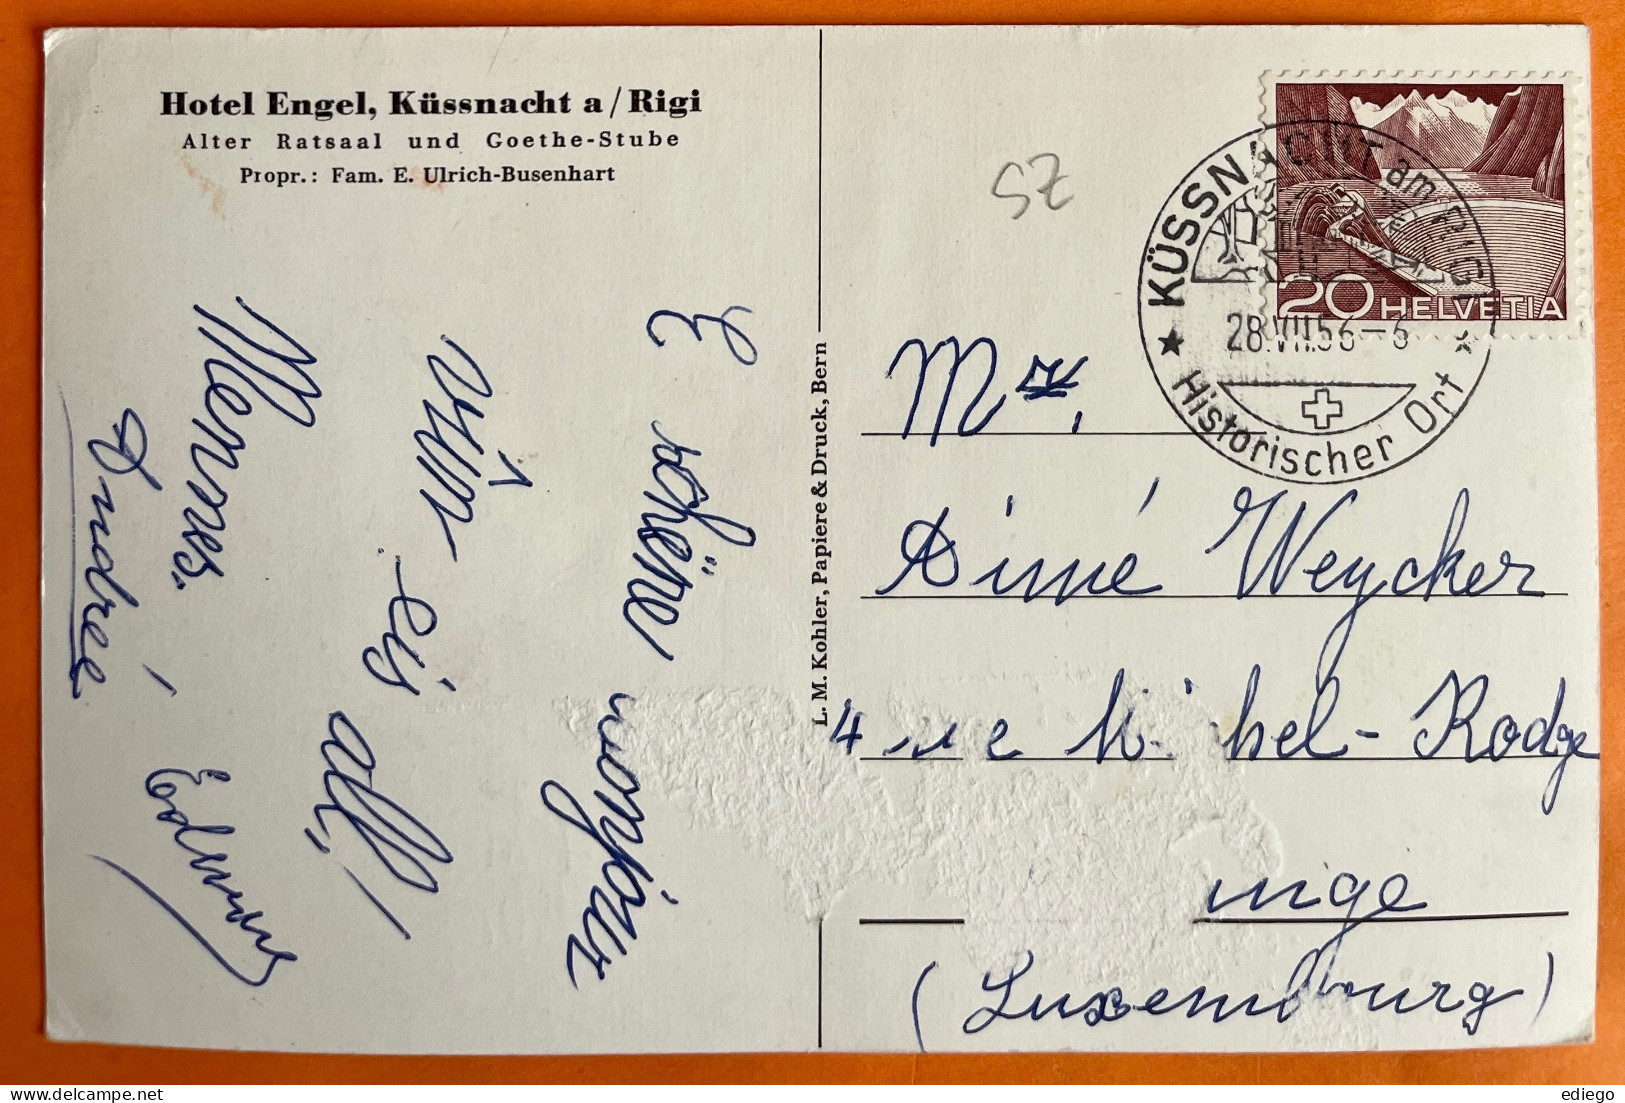 Hotel Engel, Küssnacht a/Rigi
Alter Ratsaal und Goethe-Stube
Propr.: Fam. E. Ulrich-Busenhart
E schéine
vun eis all!
Edmond
Andrée
L. M. Kohler, Papiere & Druck, Bern
SZ
KÜSSNACHT am RIGI
28.VII.56-6
Historischer Ort
20 HELVETIA
Mr.
Aimé Weycker
4 rue Michel-Rodge
inge
(Luxembourg)
ediego